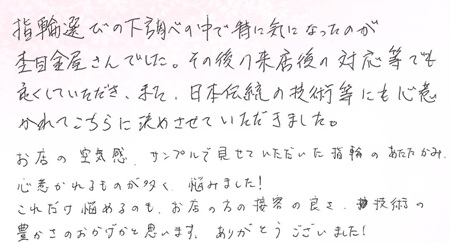 指輪選びの下調べの中で特に気になったのが
杢目金屋さんでした。その後の来店後の対応等でも
良くしていただき、また、日本伝統の技術等にも心惹
かれてこちらに決めさせていただきました。
お店の空気感、サンプルで見せていただいた指輪のあたたかみ、
心惹かれるものが多く、悩みました!
これだけ悩めるのも、お店の方の接客の良さ、技術の
豊かさのおかげかと思います。ありがとうございました!